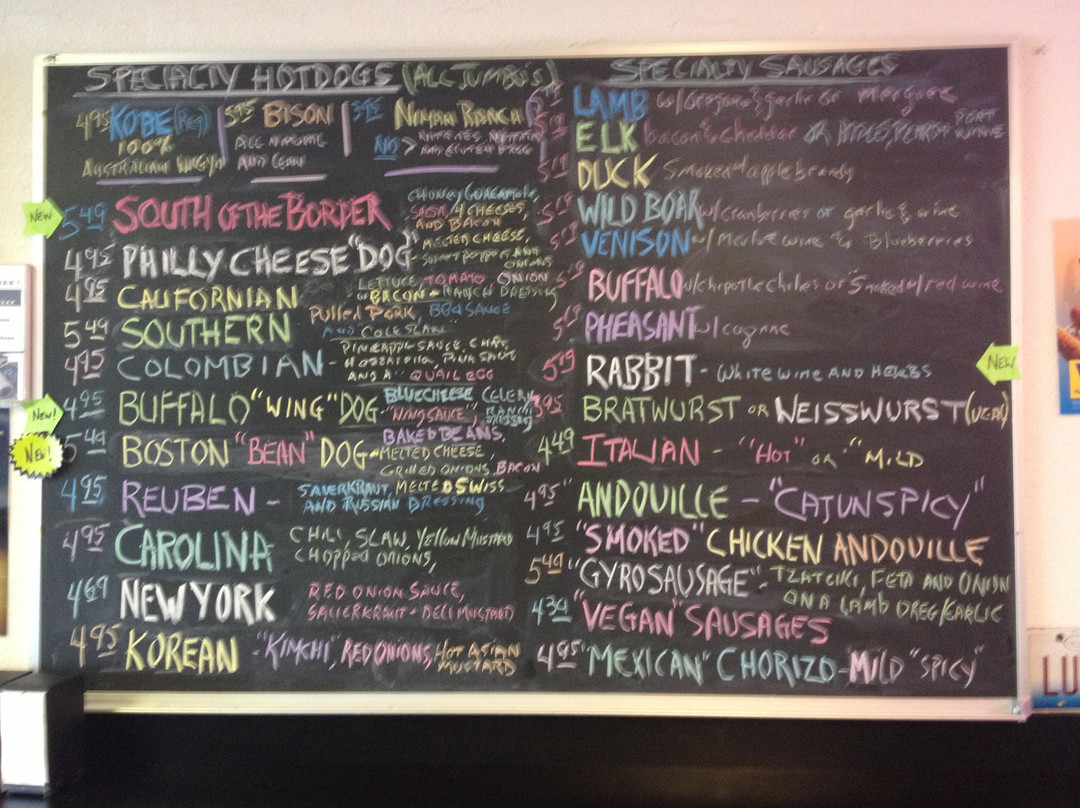 SPECIALTY HOTDOGS (ALL JUMBO'S)
4.95 KOBE (Reg)
100%
AUSTRALIAN WAGYU
5.95 BISON
ALL NATURAL
AND LEAN
5.95 NIMAN RANCH
NO > NITRATES NITRITES
AND GLUTEN FREE
NEW
5.49 SOUTH OF THE BORDER
CHUNKY GUACAMOLE,
SALSA, 4 CHEESES,
AND BACON
4.95 PHILLY CHEESE "DOG" -
MELTED CHEESE,
SWEET PEPPERS AND
ONIONS
4.95 CALIFORNIAN
LETTUCE, TOMATO, ONION
BACON + RANCH DRESSING
5.49 SOUTHERN
Pulled PORK, BBQ SAUCE
AND COLESLAW
4.95 COLOMBIAN -
PINEAPPLE SAUCE, CHIPS,
PINK SAUCE
AND A "QUAIL EGG
NEW!
4.95 BUFFALO "WING" DOG -
BLUECHEESE, CELERY,
"WING SAUCE", RANCH
DRESSING
NEW!
5.49 BOSTON "BEAN" DOG -
BAKED BEANS,
MELTED CHEESE,
GRILLED ONIONS, BACON
4.95 REUBEN -
SAUERKRAUT, MELTED SWISS
AND RUSSIAN DRESSING
4.95 CAROLINA
CHILI, SLAW, YELLOW MUSTARD
CHOPPED ONIONS,
4.69 NEW YORK
RED ONION SAUCE,
SAUERKRAUT + DELI MUSTARD
4.95 KOREAN - "KIMCHI", RED ONIONS, HOT ASIAN
MUSTARD
SPECIALTY SAUSAGES
LAMB w/Oregano & garlic or merguez
ELK bacon & cheddar OR APPLE, PEAR + PORT
WINE
5.19 DUCK Smoked w/ apple brandy
5.19 WILD BOAR w/cranberries or garlic & wine
5.19 VENISON w/ Merlot wine & Blueberries
5.19 BUFFALO w/chipotle chiles or "Smoked w/ red wine
5.19 PHEASANT w/ cognac
NEW
5.19 RABBIT - WHITE WINE AND HERBS
3.95 BRATWURST OR WEISSWURST (VEAL)
4.49 ITALIAN - "HOT" OR "MILD
4.95 ANDOUILLE - "CAJUN SPICY"
4.95 "SMOKED" CHICKEN ANDOUILLE
5.49 "GYRO SAUSAGE" - TZATZIKI, FETA AND ONION
ON A LAMB OREG/GARLIC
4.39 "VEGAN" SAUSAGES
4.95 "MEXICAN" CHORIZO - MILD "SPICY"
LU